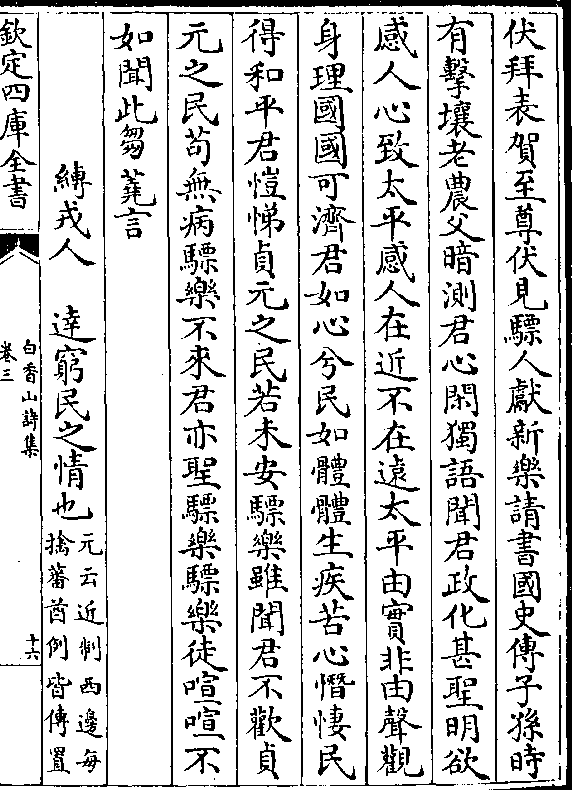 伏拜表賀至尊伏見驃人獻新樂請書國史傳子孫時
有擊壤老農父暗測君心閑獨語聞君政化甚聖明欲
感人心致太平感人在近不在遠太平由實非由聲觀
身理國國可濟君如心兮民如體體生疾苦心憯悽民
得和平君愷悌貞元之民若未安驃樂雖聞君不歡貞
元之民苟無病驃樂不來君亦聖驃樂驃樂徒喧喧不
如聞此芻蕘言
縛戎人 達窮民之情也 元云近制西邊每
擒蕃酋例皆傳置
欽定四庫全書
白香山詩集
卷三
十六